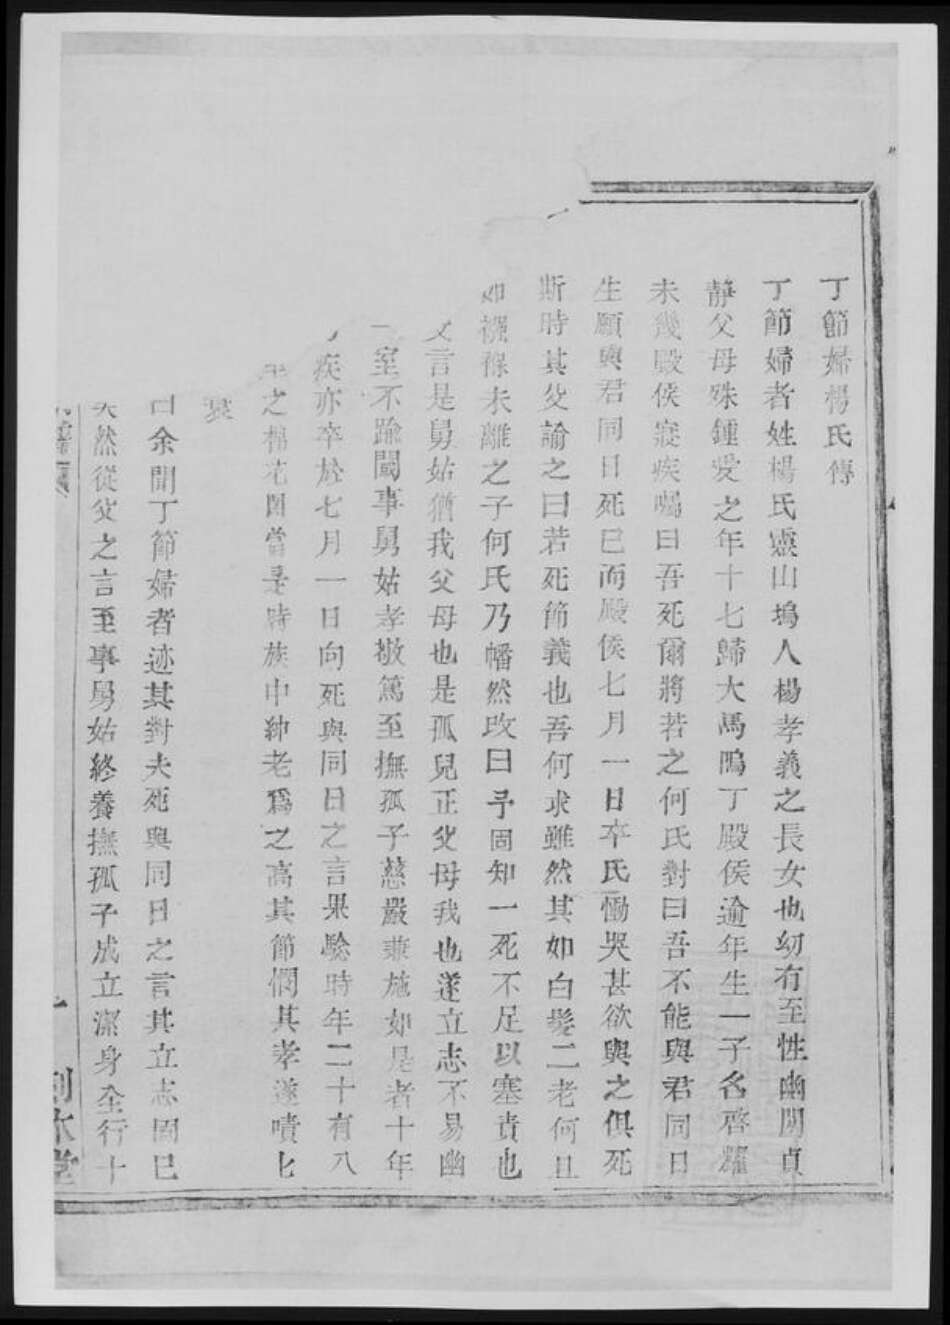 丁節婦楊氏傳
丁節婦者姓楊氏靈山塢人楊孝義之長女也幼有至性幽閒貞
靜父母殊鍾愛之年十七歸大馬鳴丁殿侯逾年生一子名啓耀
未幾殿侯寢疾囑曰吾死爾將若之何氏對曰吾不能與君同日
生願與君同日死已而殿侯七月一日卒氏慟哭甚欲與之俱死
斯時其父諭之曰若死節義也吾何求雖然其如白髮二老何且
如襁褓未離之子何氏乃幡然改曰予固知一死不足以塞責也
父言是舅姑猶我父母也是孤兒正父母我也遂立志不易幽
室不踰閾事舅姑孝敬篤至撫孤子慈嚴兼施如是者十年
疾亦卒於七月一日向死與同日之言果驗時年二十有八
之棉花園當是時族中紳老爲之高其節憫其孝遂嘖七
余聞丁節婦者迹其對夫死與同日之言其立志固已
然從父之言至事舅姑終養撫孤子成立潔身全行十